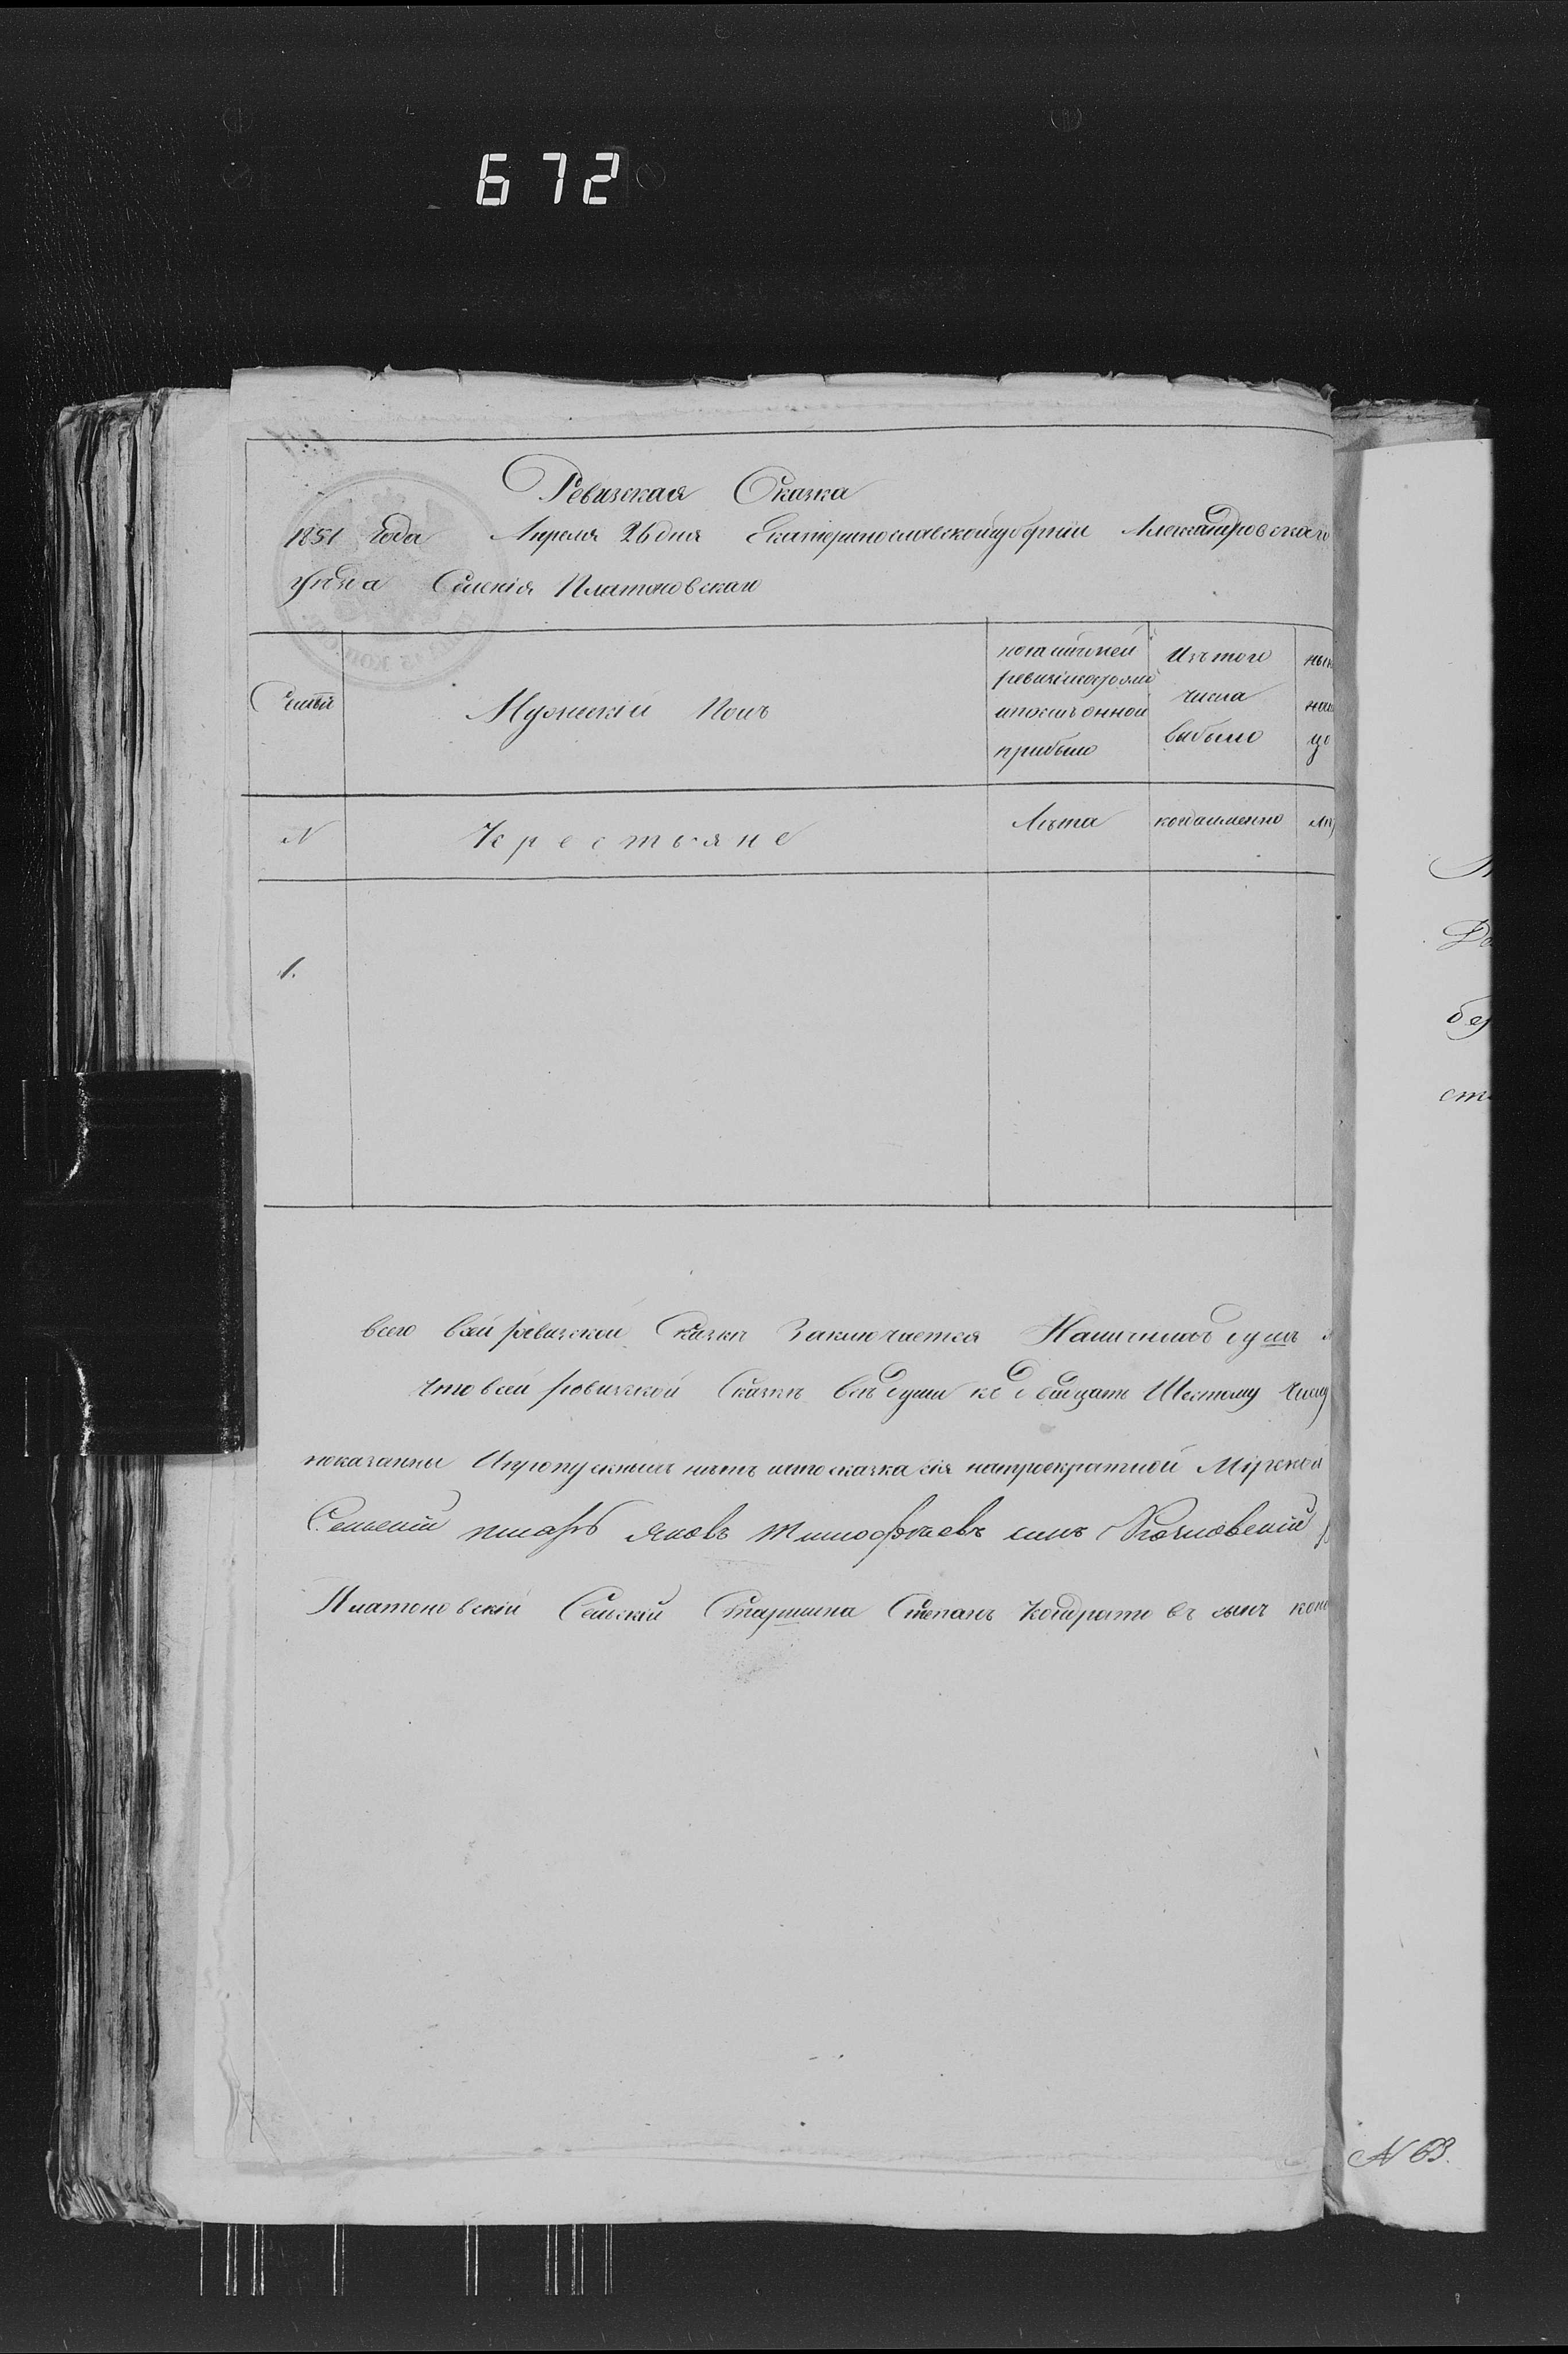 672
Ревизская Сказка
1851 года Апреля 26 дня Екатеринославской губерніи Александровского
уезда Селенія Платоновскаго
Семьи
Мужескій Полъ
по последней
ревизіи
прибыло
Изъ того
числа
выбыло
N
Крестьяне
Лѣта
когда именно
1.
всего в сей ревизской Сказке Заключается Наличныхъ душъ
Что в сей ревизской Сказке все души к двадцать Шестому Числу
показанны И пропускныхъ нетъ что сказка сія на троекратной Мірской
Сельскій писарь Яковъ Тимофеевъ сынъ
Платоновскій Сельскій Старшина Степанъ Кондратовъ сынъ
N 63.